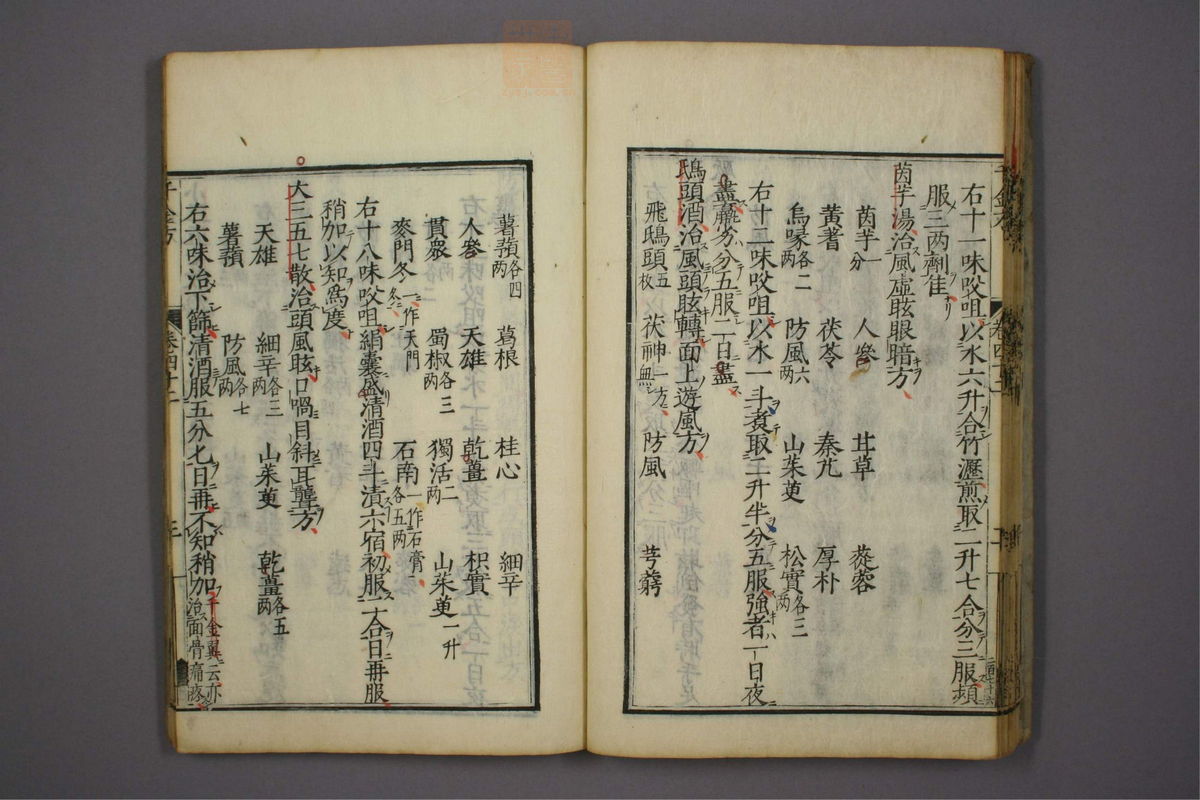 右十一味㕮咀以水六升合竹瀝煎取二升七合分三服頻
服三两劑佳
茵芋湯治風虛眩眼暗方
茵芋一分 人參 甘草 蓯蓉
黃耆 茯苓 秦艽 厚朴
烏喙各二两 防風六两 山茱萸 松實各三两
右十二味㕮咀以水一斗煮取二升半分五服強者一日夜
盡羸劣分五服二日盡
鴟頭酒治風頭眩轉面上遊風方
飛鴟頭五枚 茯神一方無 防風 芎藭
薯蕷各四两 葛根 桂心 細辛
人參 天雄 乾薑 枳實
貫衆 蜀椒各三两 獨活二两 山茱萸一升
麥門冬一作天門冬 石南各五两一作石膏
右十八味㕮咀絹囊盛清酒四斗漬六宿初服二合日再服
稍加以知爲度
大三五七散治頭風眩口喎目斜耳聾方
天雄 細辛各三两 山茱萸 乾薑各五两
薯蕷 防風各七两
右六味治下篩清酒服五分匕日再不知稍加千金翼云亦治面骨痛